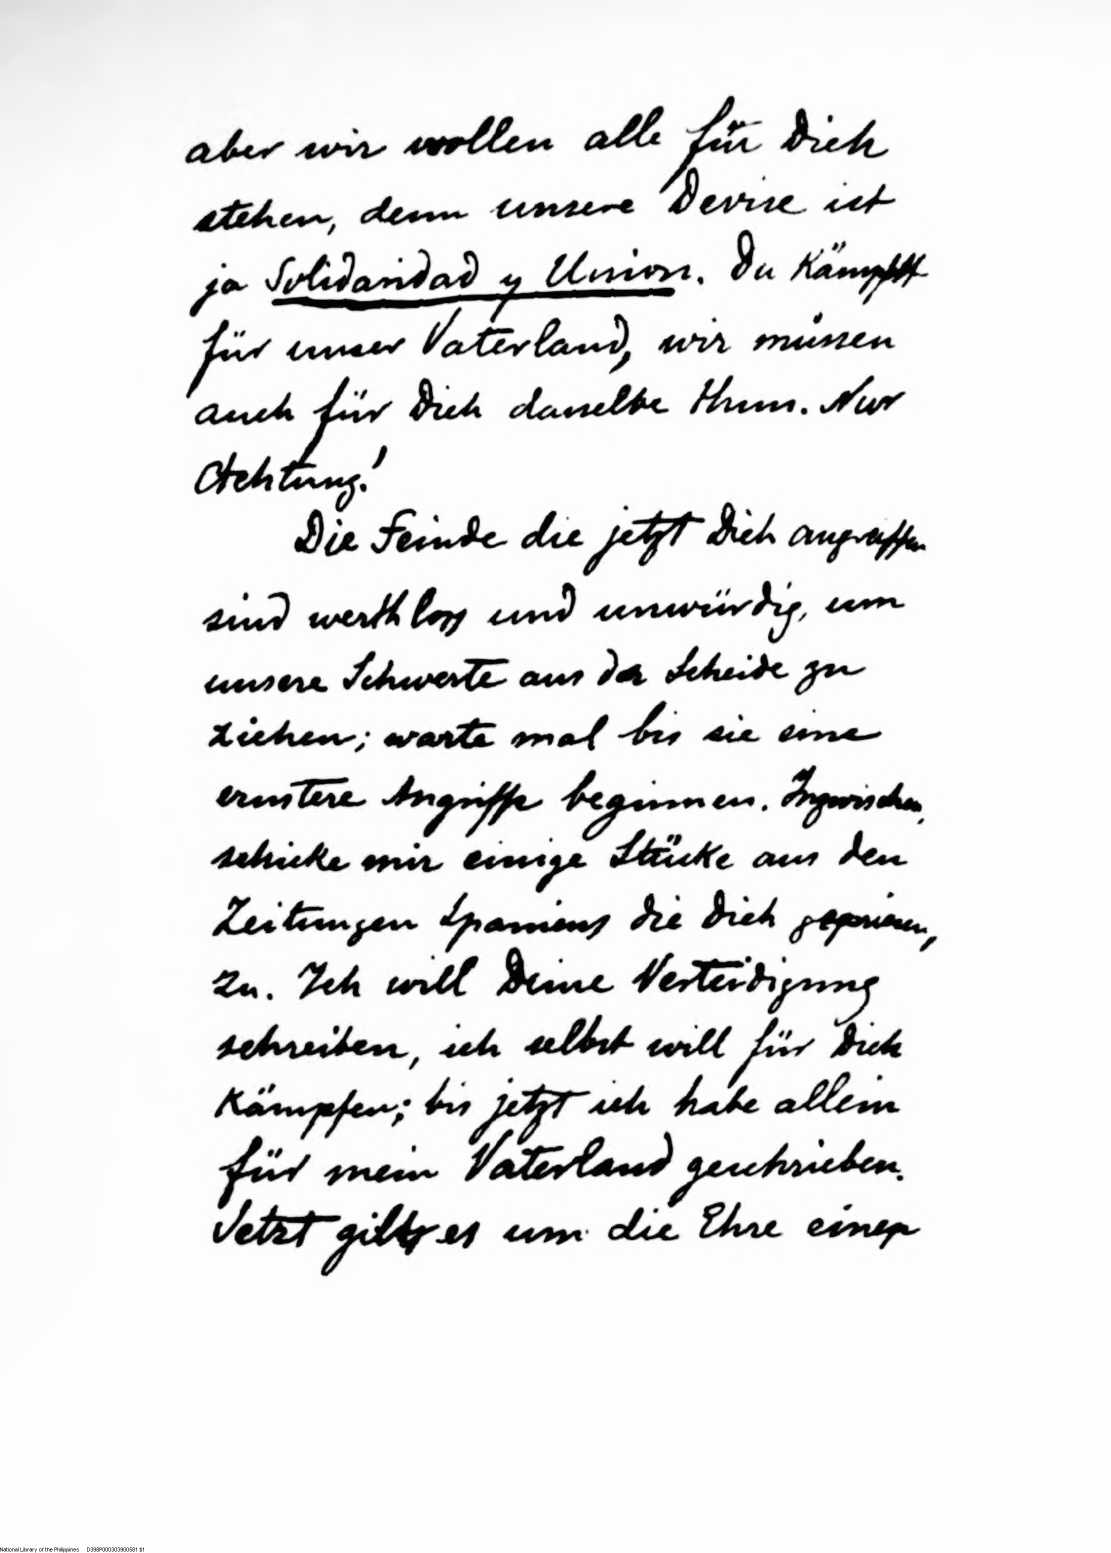 aber wir wollen alle für Dich
stehen, denn unsere Devise ist
ja Solidaridad y Union. Du Kämpfst
für unser Vaterland, wir müssen
auch für Dich dasselbe thun. Nur
Achtung!
Die Feinde die jetzt Dich angreiffen
sind werthloss und unwürdig, um
unsere Schwerte aus der Scheide zu
ziehen; warte mal bis sie eine
ernstere Angriffe beginnen. Inzwischen,
schicke mir einige Stücke aus den
Zeitungen Spaniens die Dich gepriesen,
zu. Ich will Deine Verteidigung
schreiben, ich selbst will für Dich
Kämpfen; bis jetzt ich habe allein
für mein Vaterland geschrieben.
Jetzt gilt es um die Ehre eines
National Library of the Philippines D398P000303900581.tif